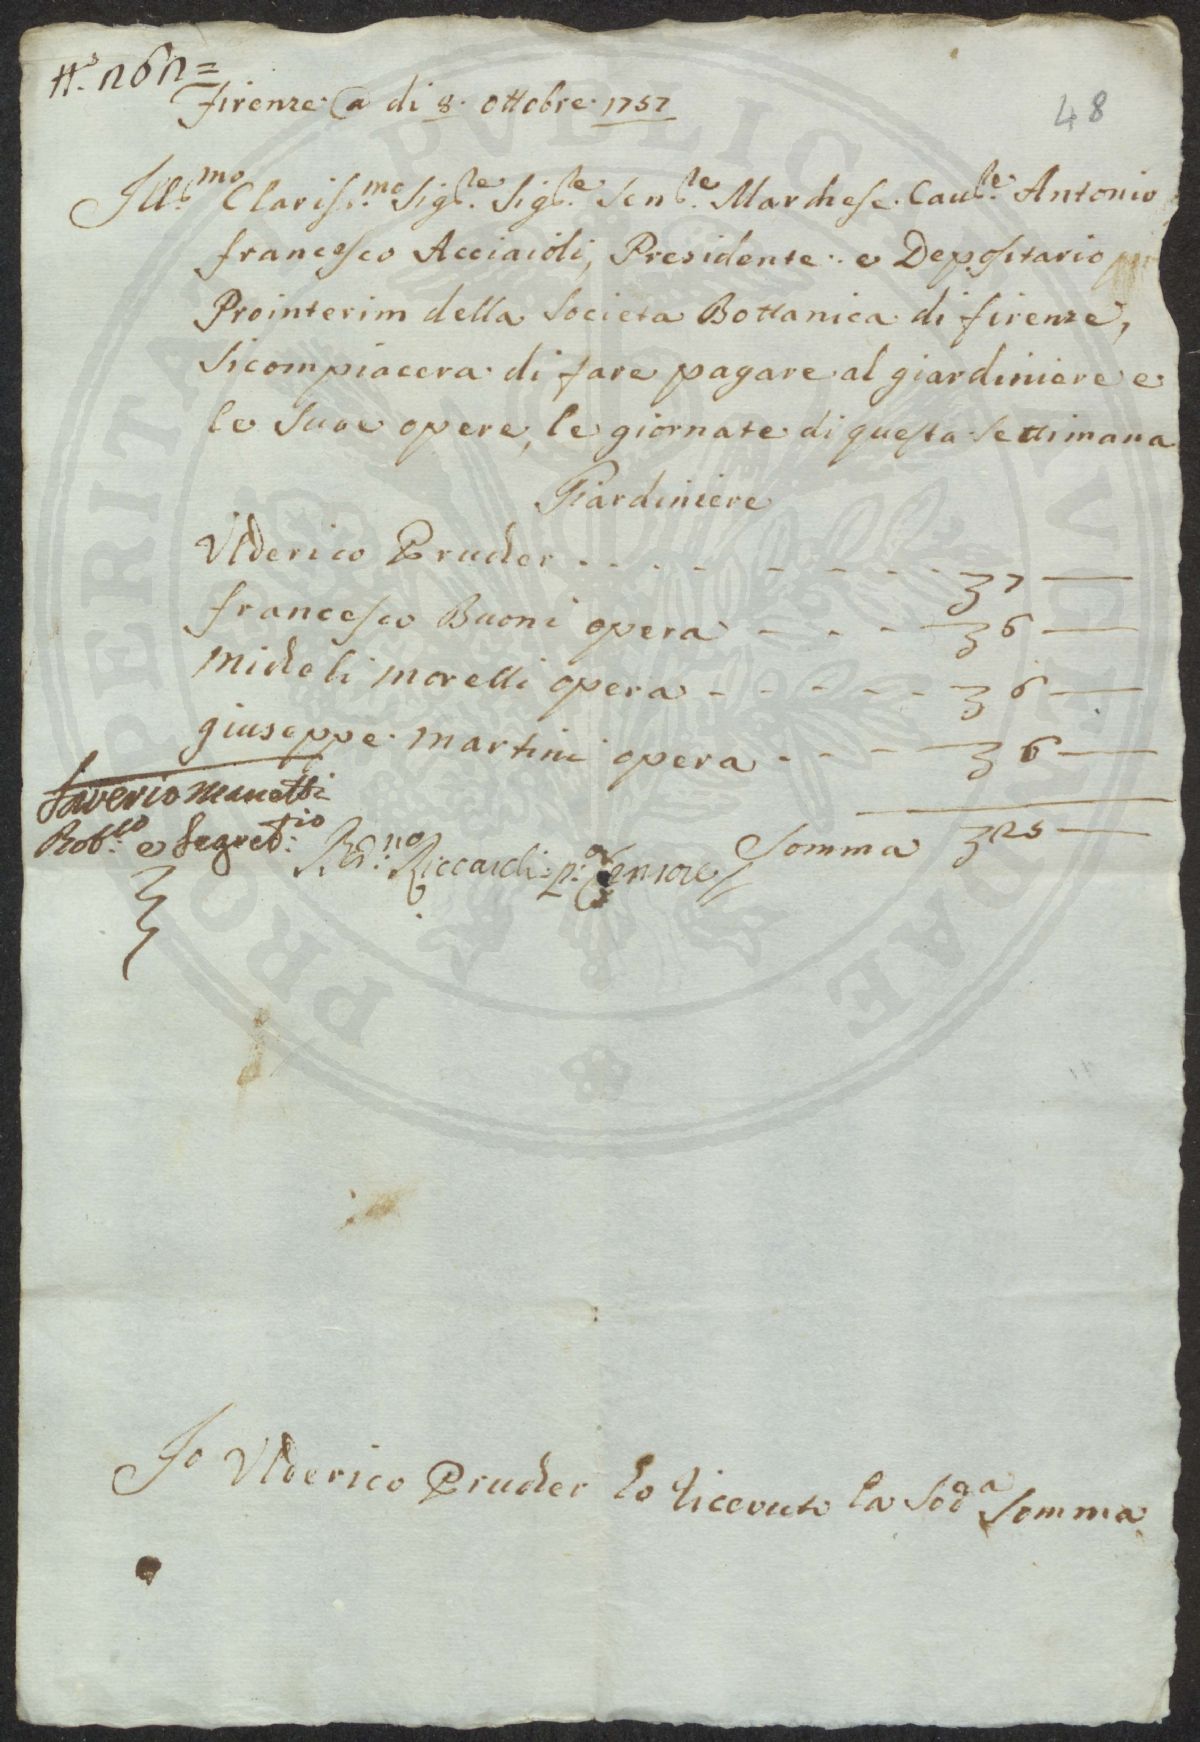 48
Firenze a di 8. ottobre. 1757
Ill.mo Clariss.mo Sig.re Sig.re Sen.re Marchese. Cau.re Antonio
francesco Acciaioli, Presidente. e Depositario
Prointerim della Societa Bottanica di firenze,
Si compiacera di fare pagare al giardiniere e
le Sue opere, le giornate di questa Settimana
Giardiniere
Vlderico Pruder £ 7
francesco Buoni opera £ 6
Micheli morelli opera £ 6
giuseppe. martini opera £ 6
Saverio Manetti
e Segret.io
Riccardi p.o Censore
Somma £ 25
Io Vlderico Pruder ho Riceuuto la Sod.a Somma
PROSPERITATI PVBLICAE AVGENDAE